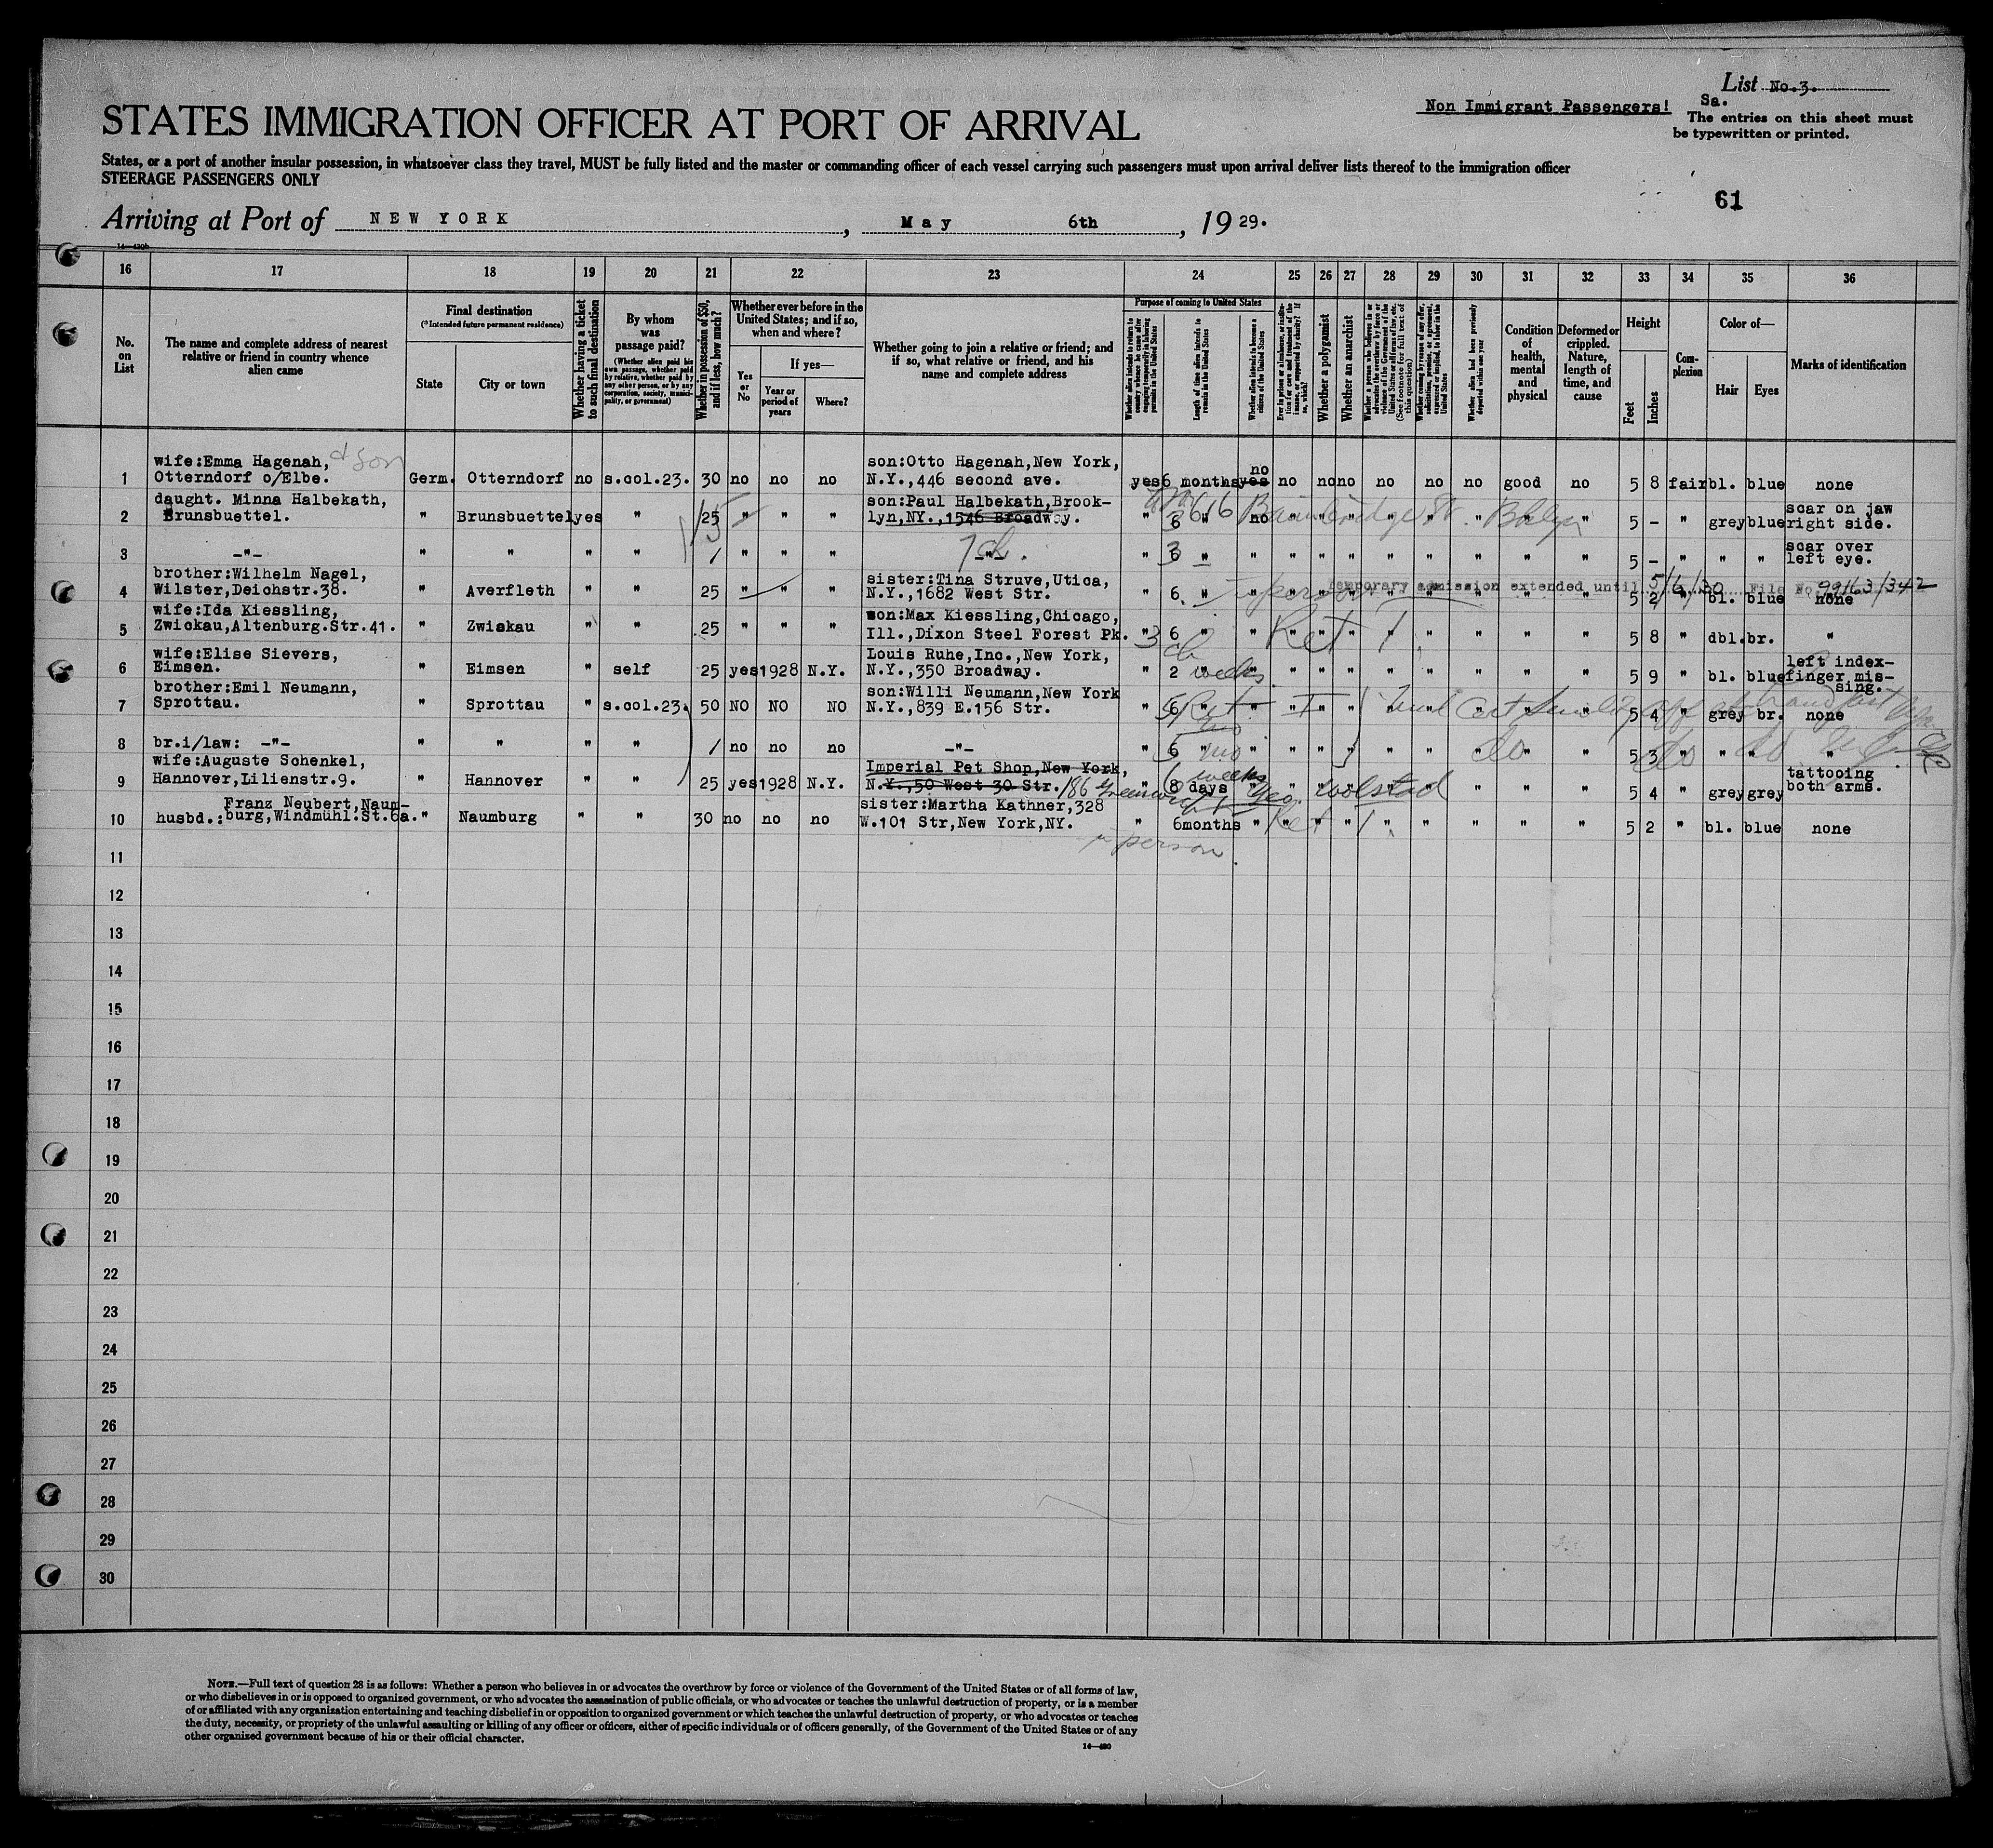 List No.3.
Non Immigrant Passengers!
Sa.
The entries on this sheet must
be typewritten or printed.
STATES IMMIGRATION OFFICER AT PORT OF ARRIVAL
States, or a port of another insular possession, in whatsoever class they travel, MUST be fully listed and the master or commanding officer of each vessel carrying such passengers must upon arrival deliver lists thereof to the immigration officer
STEERAGE PASSENGERS ONLY
61
Arriving at Port of NEW YORK, May 6th, 19 29.
14—430b
16 17 18 19 20 21 22 23 24 25 26 27 28 29 30 31 32 33 34 35 36
No. on List
The name and complete address of nearest relative or friend in country whence alien came
Final destination
(*Intended future permanent residence)
State
City or town
Whether having a ticket to such final destination
By whom was passage paid?
(Whether alien paid his own passage, whether paid by relative, whether paid by any other person, or by any corporation, society, municipality, or government)
Whether in possession of $50, and if less, how much?
Whether ever before in the United States; and if so, when and where?
Yes or No
If yes—
Year or period of years
Where?
Whether going to join a relative or friend; and if so, what relative or friend, and his name and complete address
Purpose of coming to United States
Whether alien intends to return to country whence he came after engaging temporarily in laboring pursuits in the United States
Length of time alien intends to remain in the United States
Whether alien intends to become a citizen of the United States
Ever in prison or almshouse, or institution for care and treatment of the insane, or supported by charity? If so, which?
Whether a polygamist
Whether an anarchist
Whether a person who believes in or advocates the overthrow by force or violence of the Government of the United States or all forms of law, etc. (See footnote for full text of this question)
Whether coming by reason of any offer, solicitation, promise, or agreement, expressed or implied, to labor in the United States
Whether alien had been previously deported within one year
Condition of health, mental and physical
Deformed or crippled. Nature, length of time, and cause
Height
Feet
Inches
Complexion
Color of—
Hair
Eyes
Marks of identification
1 wife:Emma Hagenah, & son Otterndorf o/Elbe. Germ. Otterndorf no s.col.23. 30 no no no son:Otto Hagenah,New York, N.Y.,446 second ave. yes 6 months no yes no no no no no no good no 5 8 fair bl. blue none
2 daught. Minna Halbekath, Brunsbuettel. " Brunsbuettel yes " 25 " " " son:Paul Halbekath,Brooklyn,NY.,1546 Broadway. 616 Bainbridge St. Bklyn " 3 " no " " " " " " " " 5 - " grey blue scar on jaw right side.
3 -"- " " " " / " " " -"- " 3 " " " " " " " " " " 5 - " " " scar over left eye.
4 brother:Wilhelm Nagel, Wilster,Deichstr.38. " Averfleth " " 25 " " " sister:Tina Struve,Utica, N.Y.,1682 West Str. " 6 " " " " " " " " " " 5 2 " bl. blue none
Temporary admission extended until 5/6/30 File No. 99163/342
5 wife:Ida Kiessling, Zwickau,Altenburg.Str.41. " Zwickau " " 25 " " " son:Max Kiessling,Chicago, Ill.,Dixon Steel Forest Pk. " 6 " " " " " " " " " " 5 8 " dbl. br. "
6 wife:Elise Sievers, Eimsen. " Eimsen " self 25 yes 1928 N.Y. Louis Ruhe,Inc.,New York, N.Y.,350 Broadway. " 2 weeks " " " " " " " " " 5 9 " bl. blue left index-finger missing.
7 brother:Emil Neumann, Sprottau. " Sprottau " s.col.23. 50 NO NO NO son:Willi Neumann,New York N.Y.,839 E.156 Str. " 6 " " " " " " " " " " 5 4 " grey br. none
8 br.i/law: -"- " " " " / no no no -"- " 6 mo " " " " " " " do " 5 3 " " " "
9 wife:Auguste Schenkel, Hannover,Lilienstr.9. " Hannover " " 25 yes 1928 N.Y. Imperial Pet Shop,New York, N.Y.,50 West 30 Str. 186 Greenwich St Geo. Wolstad " 6 weeks 8 days " " " " " " " " 5 4 " grey grey tattooing both arms.
10 husbd.: Franz Neubert,Naumburg,Windmühl.St.6a. " Naumburg " " 30 no no no sister:Martha Kathner,328 W.101 Str,New York,NY. " 6months " " " " " " " " " 5 2 " bl. blue none
in person
11
12
13
14
15
16
17
18
19
20
21
22
23
24
25
26
27
28
29
30
NOTE.—Full text of question 28 is as follows: Whether a person who believes in or advocates the overthrow by force or violence of the Government of the United States or of all forms of law,
or who disbelieves in or is opposed to organized government, or who advocates the assassination of public officials, or who advocates or teaches the unlawful destruction of property, or is a member
of or affiliated with any organization entertaining and teaching disbelief in or opposition to organized government or which teaches the unlawful destruction of property, or who advocates or teaches
the duty, necessity, or propriety of the unlawful assaulting or killing of any officer or officers, either of specific individuals or of officers generally, of the Government of the United States or of any
other organized government because of his or their official character.
14—430